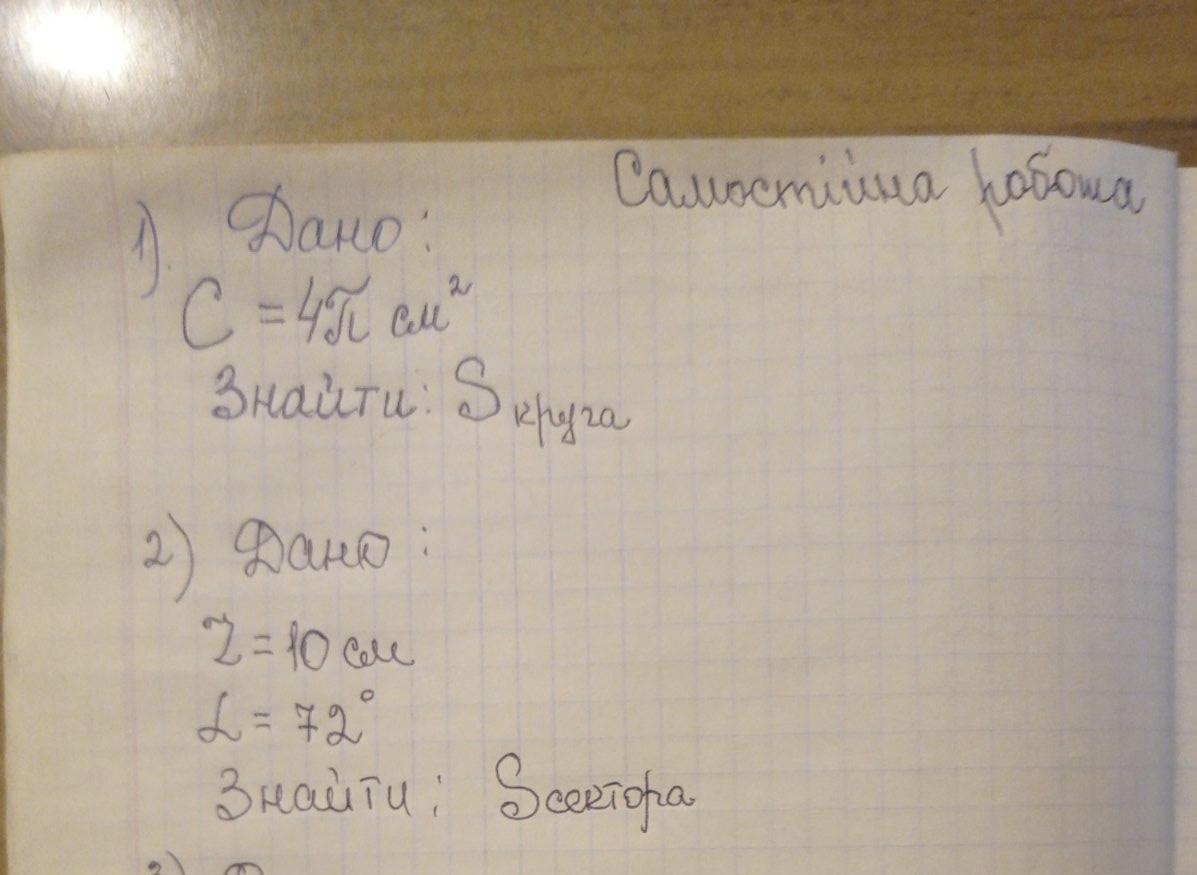 Самостійна робота
1). Дано:
C = 4π см²
Знайти: Sкруга
2) Дано:
r = 10 см
α = 72°
Знайти: Sсектора
3)